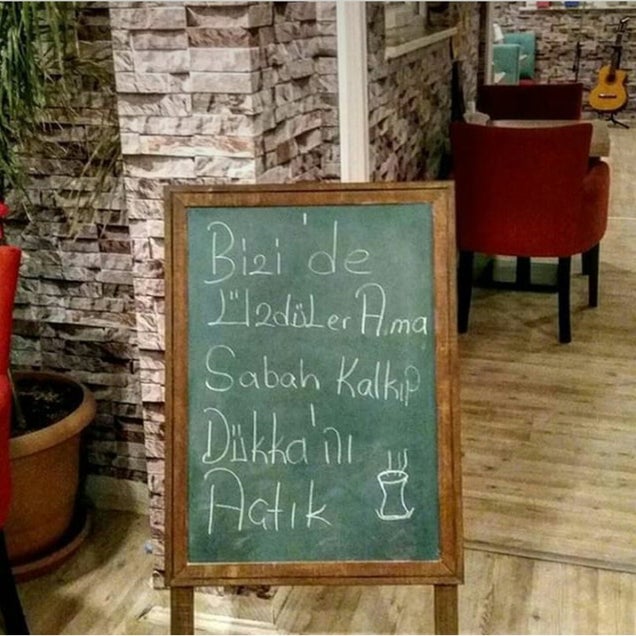 Bizi'de
Üzdüler Ama
Sabah Kalkıp
Dükka'nı
Açtık